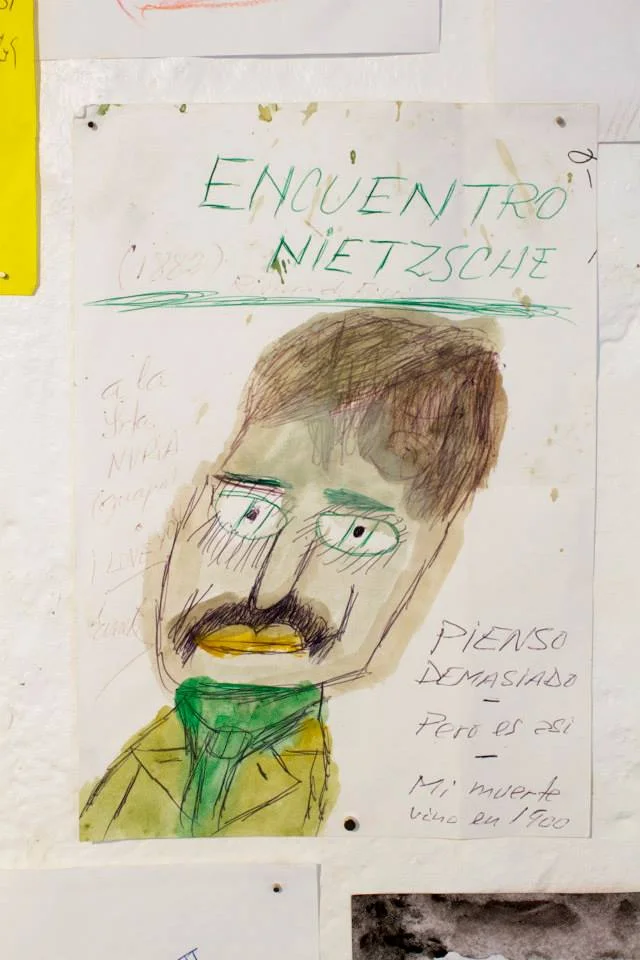 ENCUENTRO
NIETZSCHE
(1882)
a la
Srta.
NURIA
I LOVE
PIENSO
DEMASIADO
—
Pero es asi
—
Mi muerte
vino en 1900